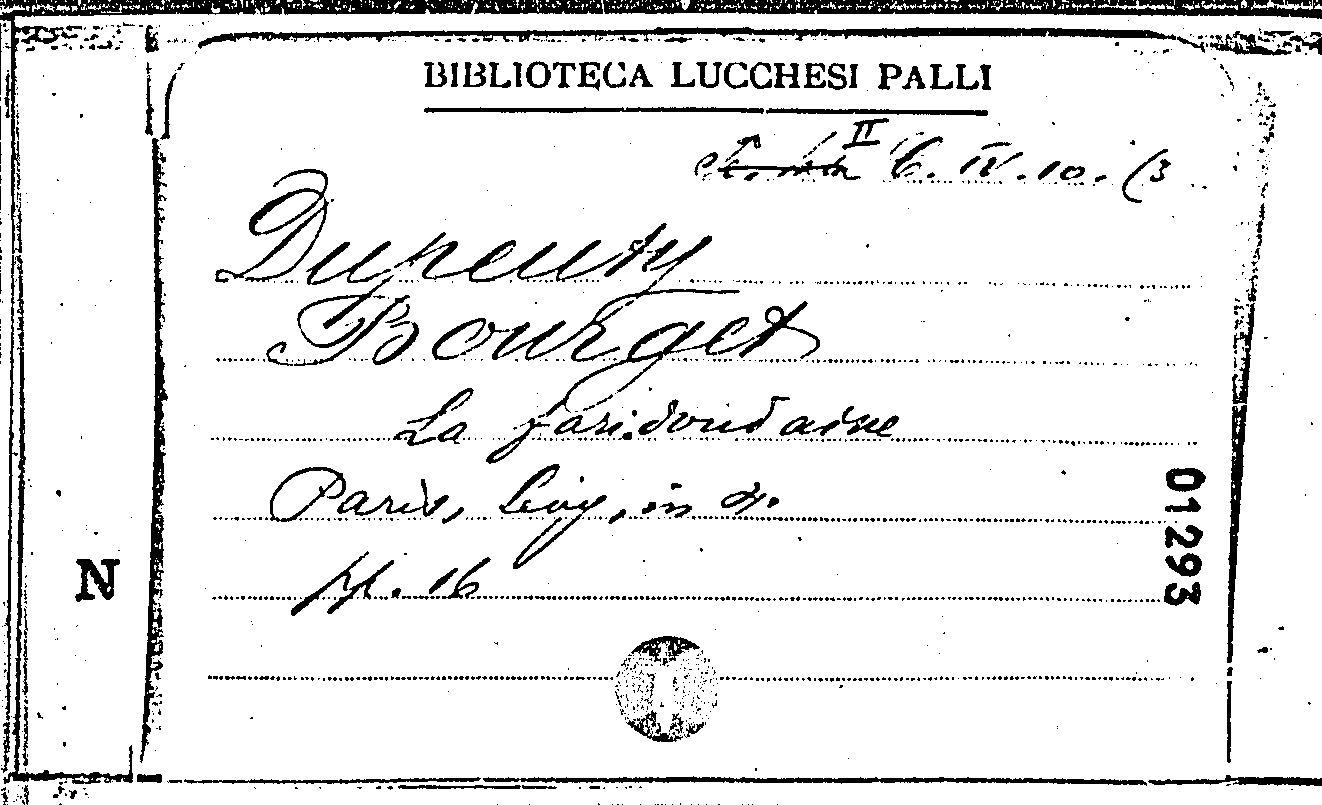 BIBLIOTECA LUCCHESI PALLI
II C. IV. 10. (3
Dupeuty
Bourget
La faridondaine
Paris, Lévy, in 4.
pp. 16
N
01293